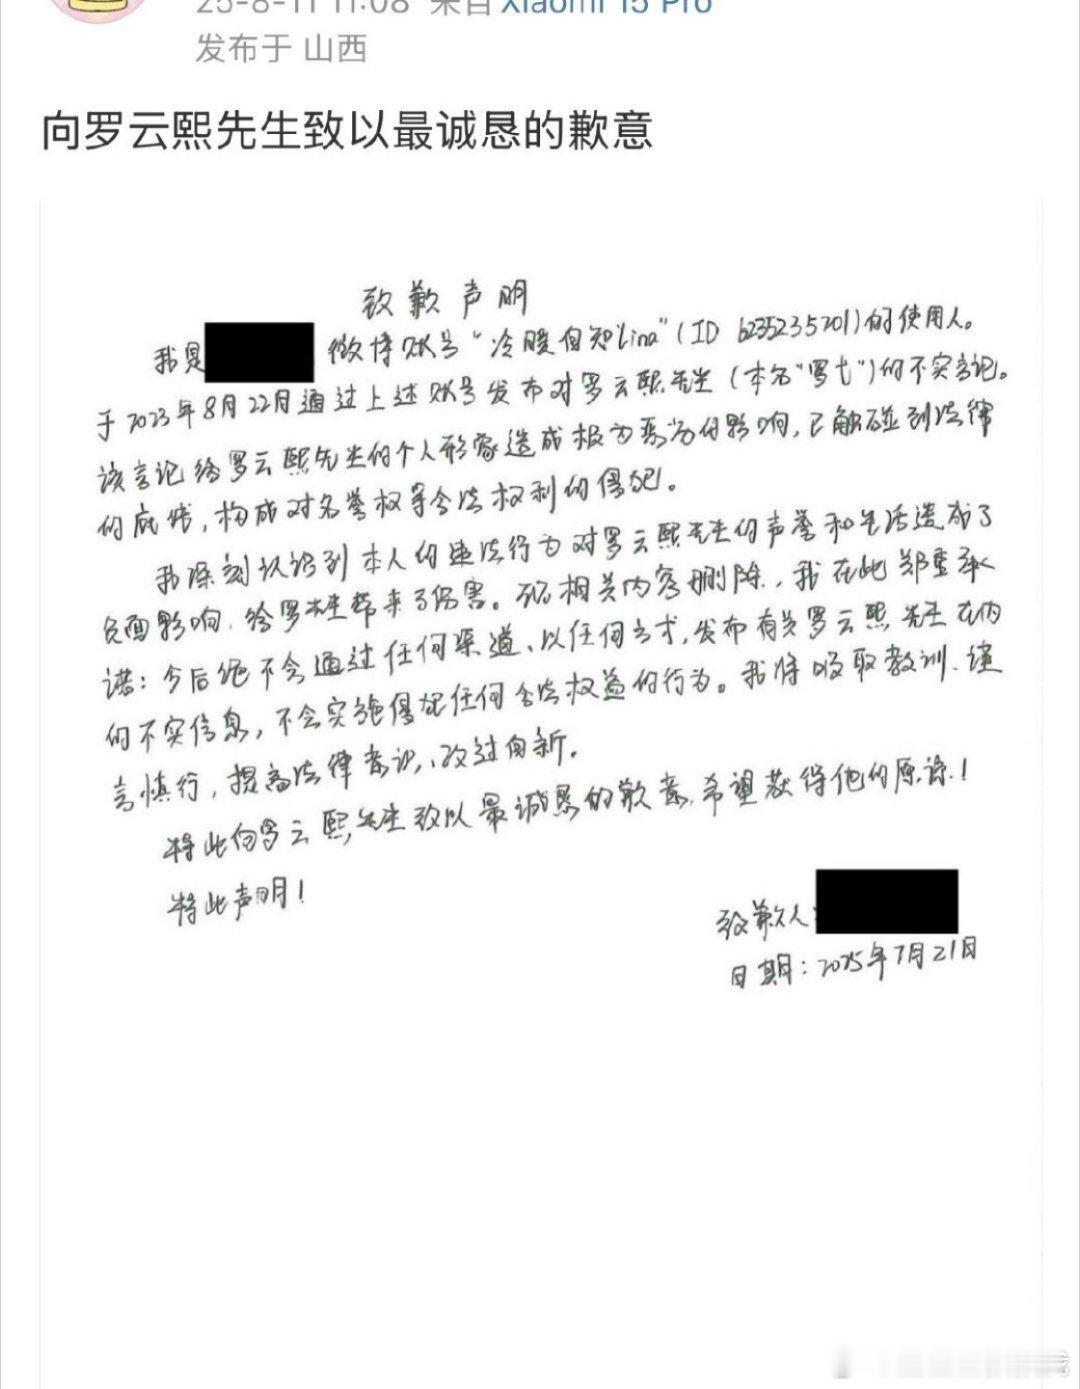 25-8-11 11:08 来自 Xiaomi 15 Pro
发布于 山西
向罗云熙先生致以最诚恳的歉意
致歉声明
我是 微博账号“冷暖自知lina”(ID 6235235201)的使用人。
于2023年8月22月通过上述账号发布对罗云熙先生(本名“罗弋”)的不实言论。
该言论给罗云熙先生的个人形象造成极为恶劣的影响,已触碰到法律
的底线,构成对名誉权等合法权利的侵犯。
我深刻认识到本人的违法行为对罗云熙先生的声誉和生活造成了
负面影响,给罗先生带来了伤害。现相关内容删除,我在此郑重承
诺:今后绝不会通过任何渠道、以任何方式,发布有关罗云熙先生在内
的不实信息,不会实施侵犯任何合法权益的行为。我将吸取教训、谨
言慎行,提高法律意识、改过自新。
特此向罗云熙先生致以最诚恳的歉意,希望获得他的原谅!
特此声明!
致歉人:
日期:2025年7月21日